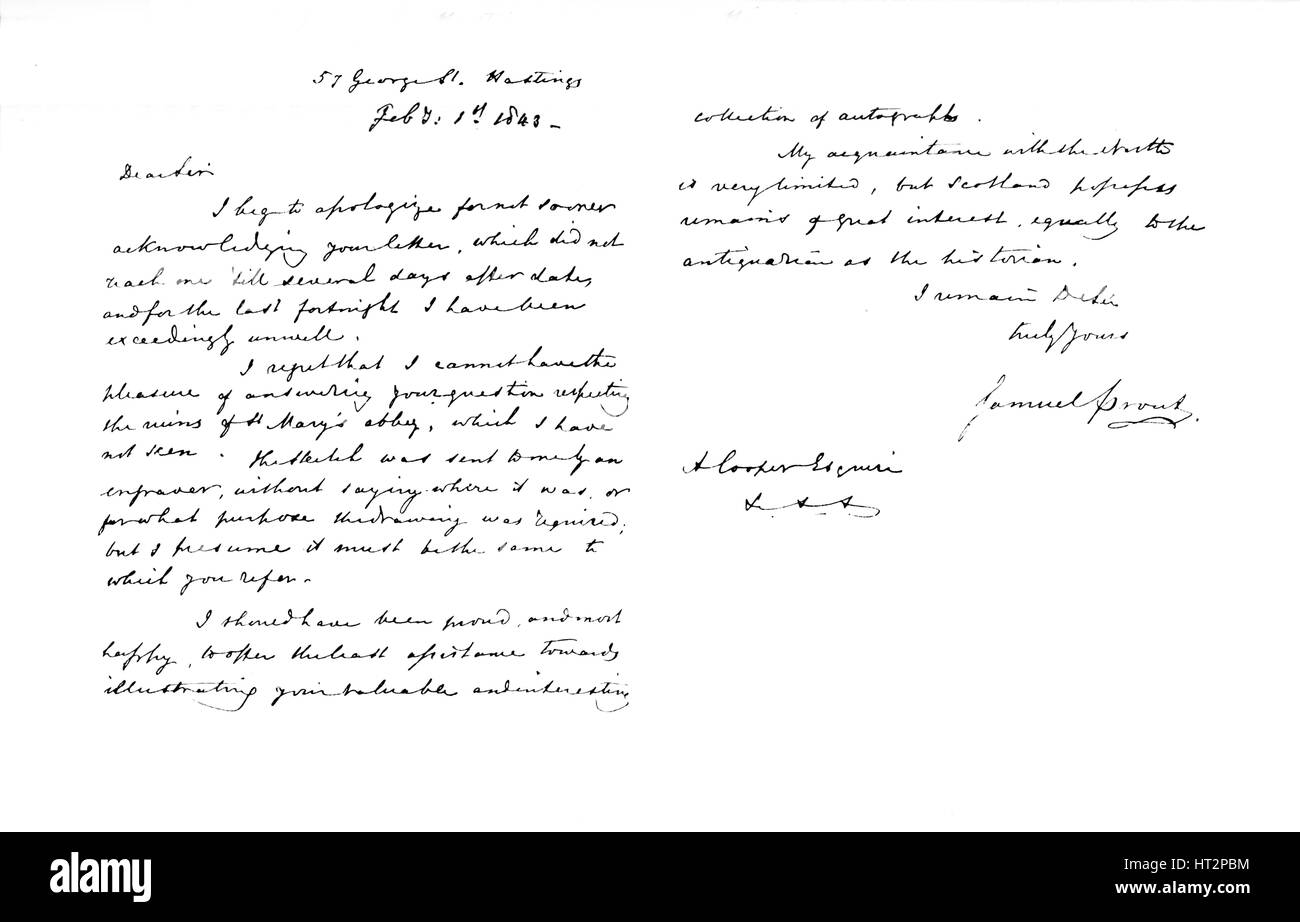 57 George St. Hastings
Feby: 1st 1843 –
Dear Sir
I beg to apologize for not sooner
acknowledging your letter, which did not
reach me 'till several days after date,
and for the last fortnight I have been
exceedingly unwell.
I regret that I cannot have the
pleasure of answering your question respecting
the ruins of St Mary's abbey, which I have
not seen. The sketch was sent to me by an
engraver, without saying where it was, or
for what purpose the drawing was required;
but I presume it must be the same to
which you refer.
I should have been proud, and most
happy, to offer the least assistance towards
illustrating your valuable and interesting
collection of autographs.
My acquaintance with the North
is very limited, but Scotland possesses
remains of great interest, equally to the
antiquarian as the historian.
I remain Dr Sir
truly yours
Samuel Prout.
A Cooper Esquire
alamy
alamy
Image ID: HT2PBM
www.alamy.com